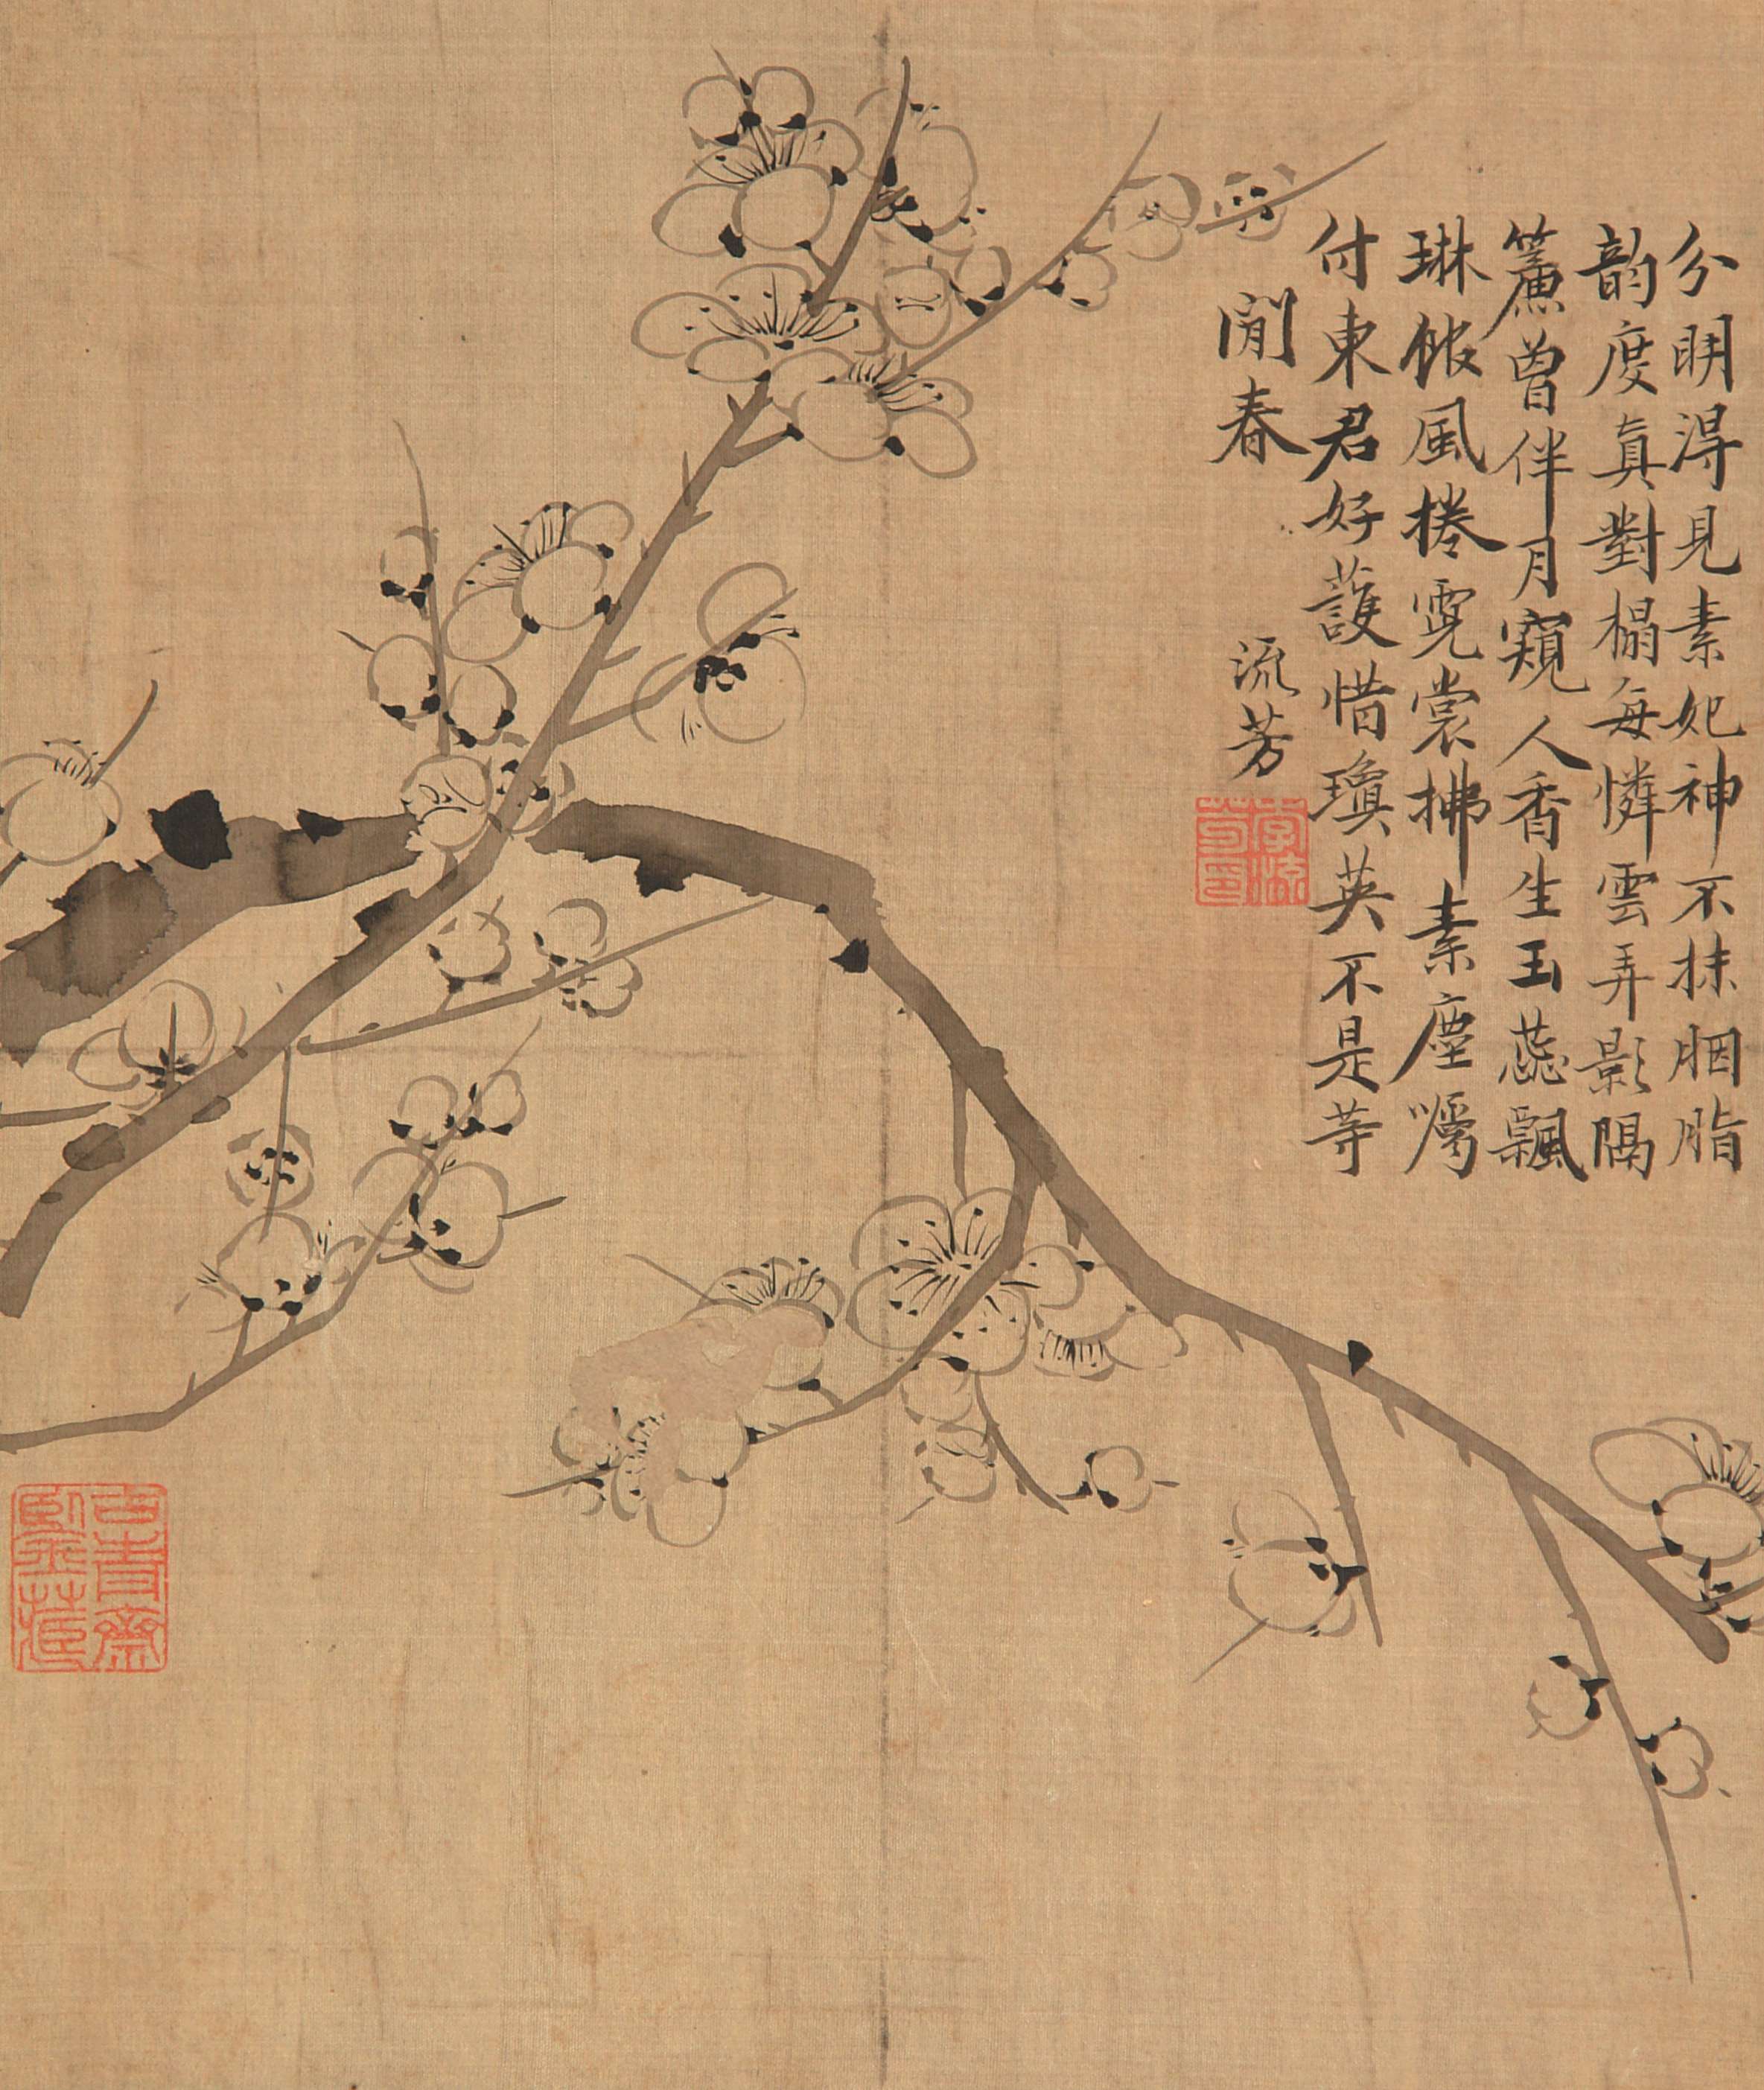 分明得見素妃神不抹胭脂
韵度真對榻每憐雲弄影隔
簾曾伴月窺人香生玉蕊飄
琳館風捲霓裳拂素塵囑
付東君好護惜瓊英不是等
閒春
流芳
李流芳印